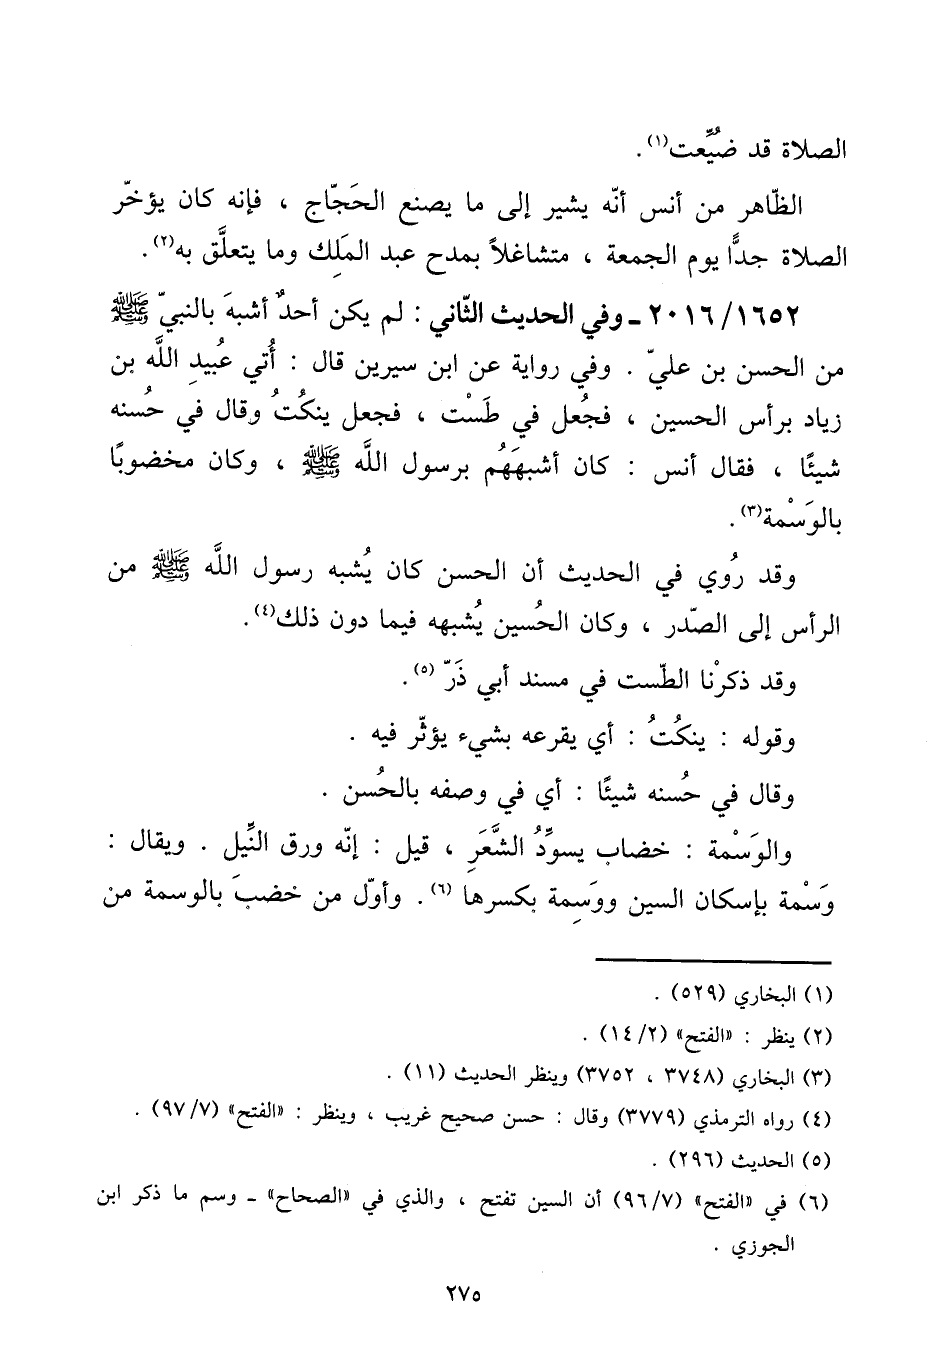 الصلاة قد ضُيِّعت(١) .
الظّاهر من أنس أنّه يشير إلى ما يصنع الحَجّاج ، فإنه كان يؤخّر
الصلاة جدًّا يوم الجمعة ، متشاغلاً بمدح عبد المَلِك وما يتعلَّق به(٢).
٢٠١٦/١٦٥٢ ـ وفي الحديث الثّاني : لم يكن أحدٌ أشبهَ بالنبيّ ﷺ
من الحسن بن عليّ . وفي رواية عن ابن سيرين قال : أُتي عُبيدِ اللَّه بن
زياد برأس الحسين ، فجُعل في طَسْت ، فجعل ينكُتُ وقال في حُسنه
شيئًا ، فقال أنس : كان أشبهَهُم برسول اللَّه ﷺ ، وكان مخضوبًا
بالوَسْمة(٣).
وقد رُوي في الحديث أن الحسن كان يُشبه رسول اللَّه ﷺ من
الرأس إلى الصّدر ، وكان الحُسين يُشبهه فيما دون ذلك(٤).
وقد ذكرْنا الطّست في مسند أبي ذَرّ (٥).
وقوله : ينكُتُ : أي يقرعه بشيء يؤثّر فيه .
وقال في حُسنه شيئًا : أي في وصفه بالحُسن .
والوَسْمة : خضاب يسوِّدُ الشَّعَرِ ، قيل : إنّه ورق النِّيل . ويقال :
وَسْمة بإسكان السين ووَسِمة بكسرها (٦). وأوّل من خضبَ بالوسمة من
(١) البخاري (٥٢٩) .
(٢) ينظر : «الفتح» (١٤/٢) .
(٣) البخاري (٣٧٤٨ ، ٣٧٥٢) وينظر الحديث (١١) .
(٤) رواه الترمذي (٣٧٧٩) وقال : حسن صحيح غريب ، وينظر : «الفتح» (٩٧/٧) .
(٥) الحديث (٢٩٦) .
(٦) في «الفتح» (٩٦/٧) أن السين تفتح ، والذي في «الصحاح» ـ وسم ما ذكر ابن
الجوزي .
٢٧٥